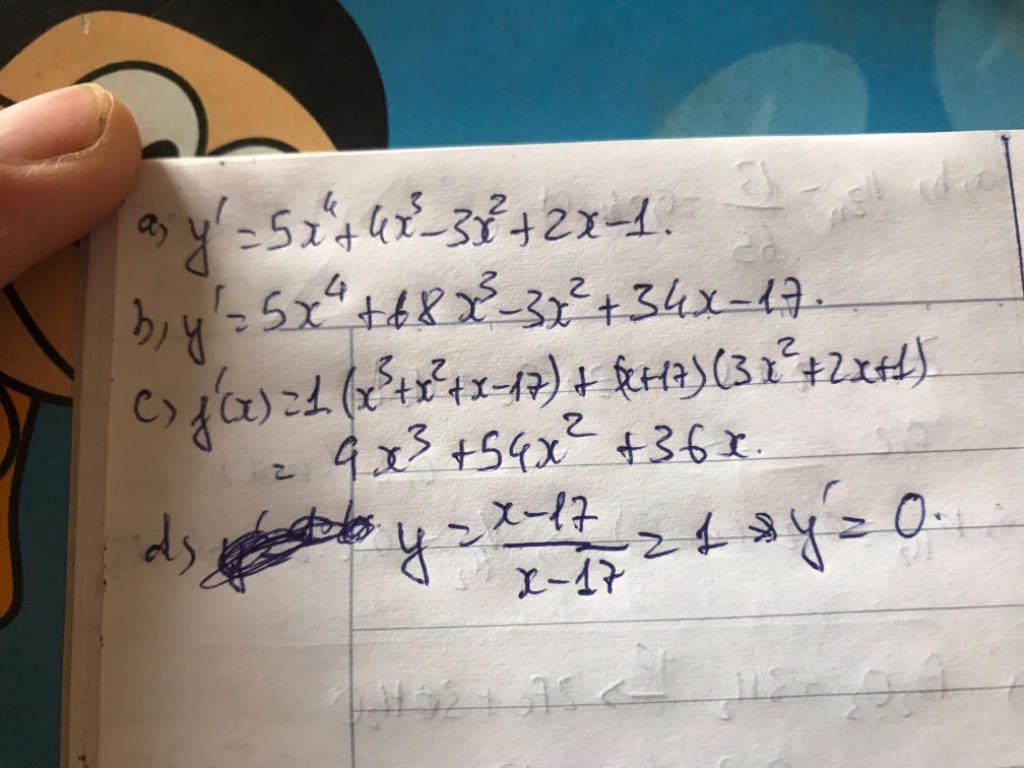 a, y' = 5x⁴ + 4x³ - 3x² + 2x - 1.
b, y' = 5x⁴ + 68x³ - 3x² + 34x - 17.
c, f'(x) = 1(x³ + x² + x - 17) + (x + 17)(3x² + 2x + 1)
= 4x³ + 54x² + 36x.
d, y = (x - 17)/(x - 17) = 1 ⇒ y' = 0.